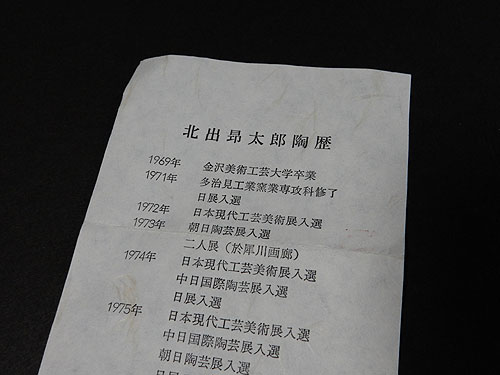 北出昻太郎陶歴
1969年 金沢美術工芸大学卒業
1971年 多治見工業窯業専攻科修了
日展入選
1972年 日本現代工芸美術展入選
1973年 朝日陶芸展入選
二人展（於犀川画廊）
1974年 日本現代工芸美術展入選
中日国際陶芸展入選
日展入選
1975年 日本現代工芸美術展入選
中日国際陶芸展入選
朝日陶芸展入選